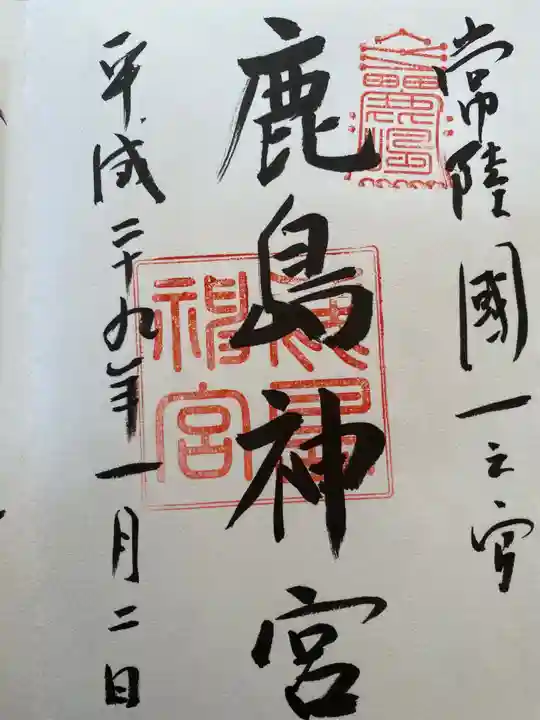 常陸國一之宮
鹿島神宮
平成二十九年一月二日
鹿島神宮